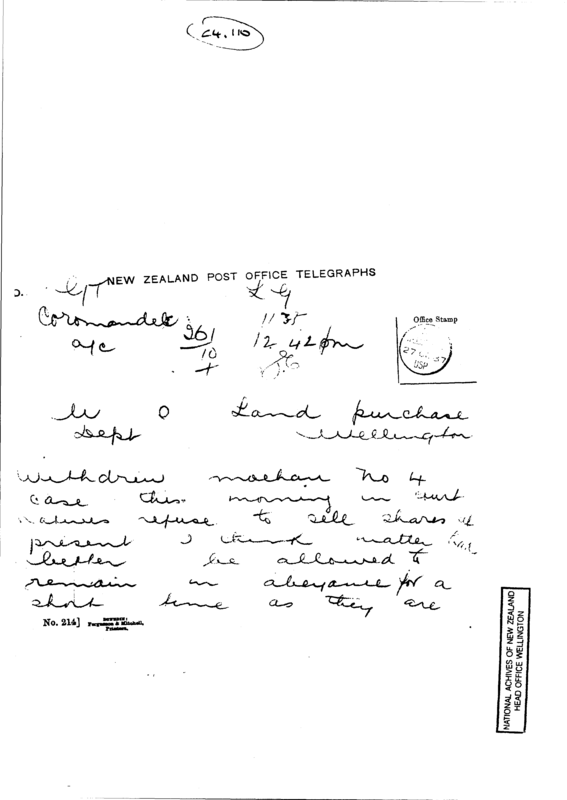 C4.110
NEW ZEALAND POST OFFICE TELEGRAPHS
Coromandel 261 1135
a/c 10 12 42 pm
+
Office Stamp
27
USP
U O Land purchase
Dept Wellington
Withdrew moehau No 4
case this morning in court
natives refuse to sell shares at
present I think matter had
better be allowed to
remain in abeyance for a
short time as they are
No. 214] Ferguson & Mitchell,
Printers.
NATIONAL ACHIVES OF NEW ZEALAND
HEAD OFFICE WELLINGTON